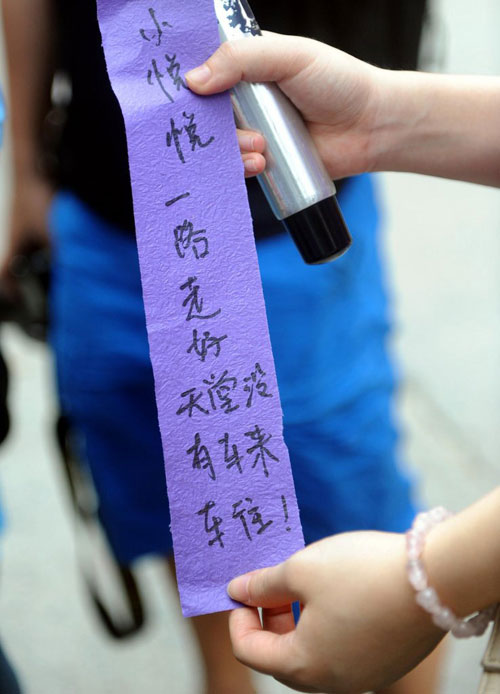 小悦悦
一路
走好
天堂没
有车来
车往！